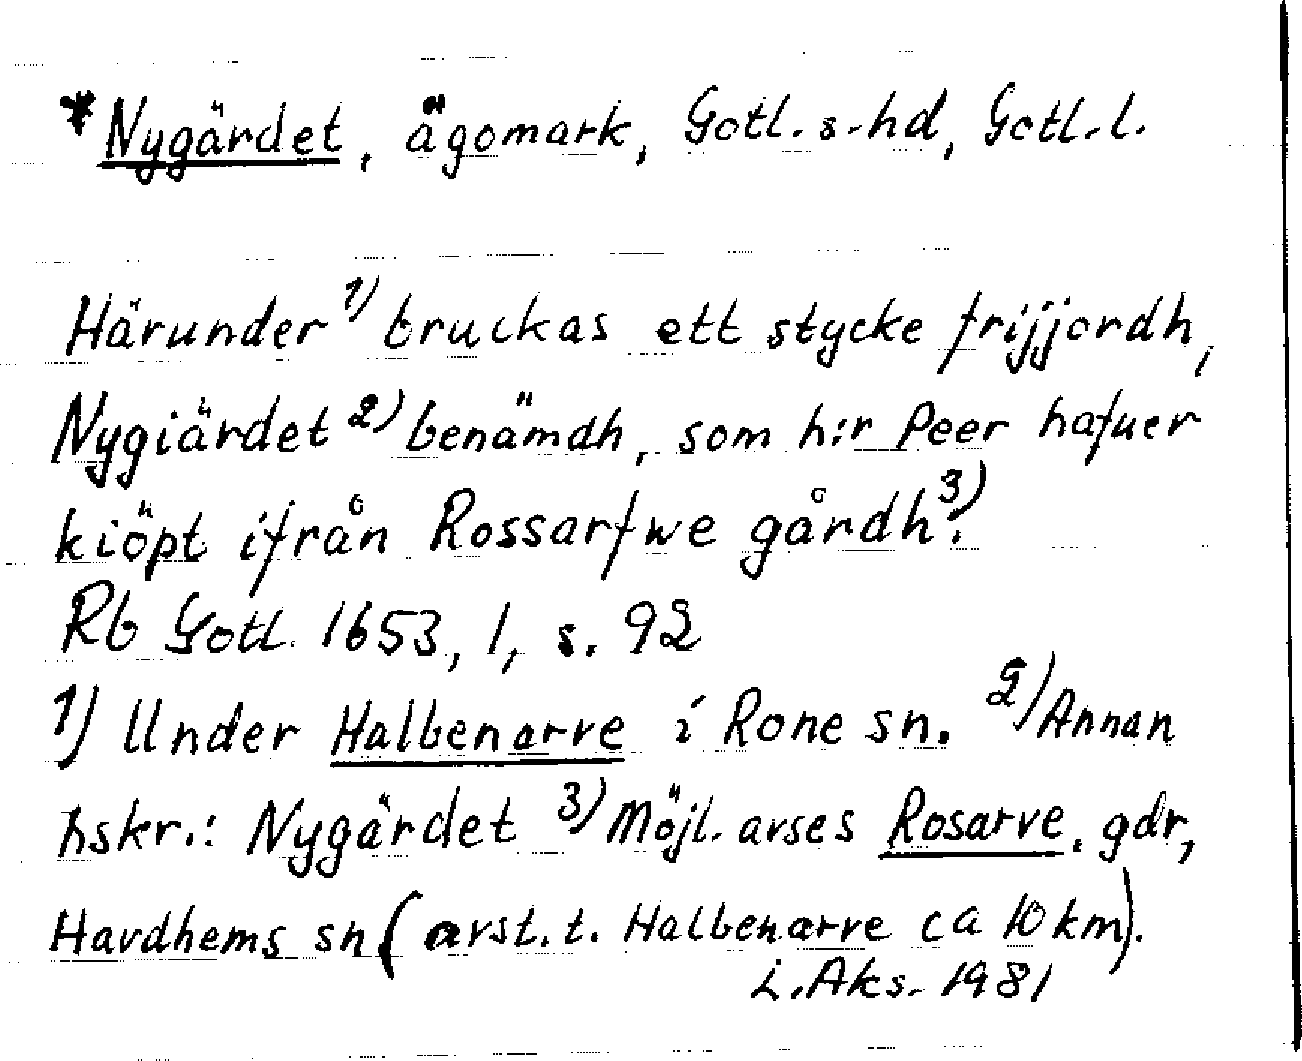 *Nygärdet, ägomark, Gotl. s. hd, Gotl. l.
Härunder 1) bruckas ett stycke frijjordh,
Nygiärdet 2) benämdh, som h:r Peer hafuer
kiöpt ifrån Rossarfwe gårdh 3).
Rb Gotl. 1653, 1, s. 92
1) Under Halbenarve i Rone sn. 2) Annan
hskr.: Nygärdet 3) Möjl. avses Rosarve, gdr,
Havdhems sn (avst. t. Halbenarve ca 10 km).
L. Aks. 1981